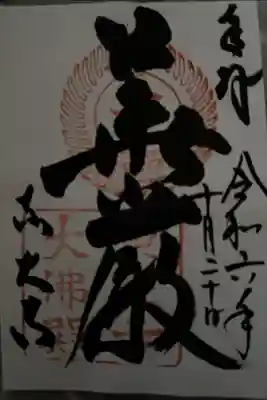 奉拝
令和六年
十月二十日
華厳
東大寺
大佛殿